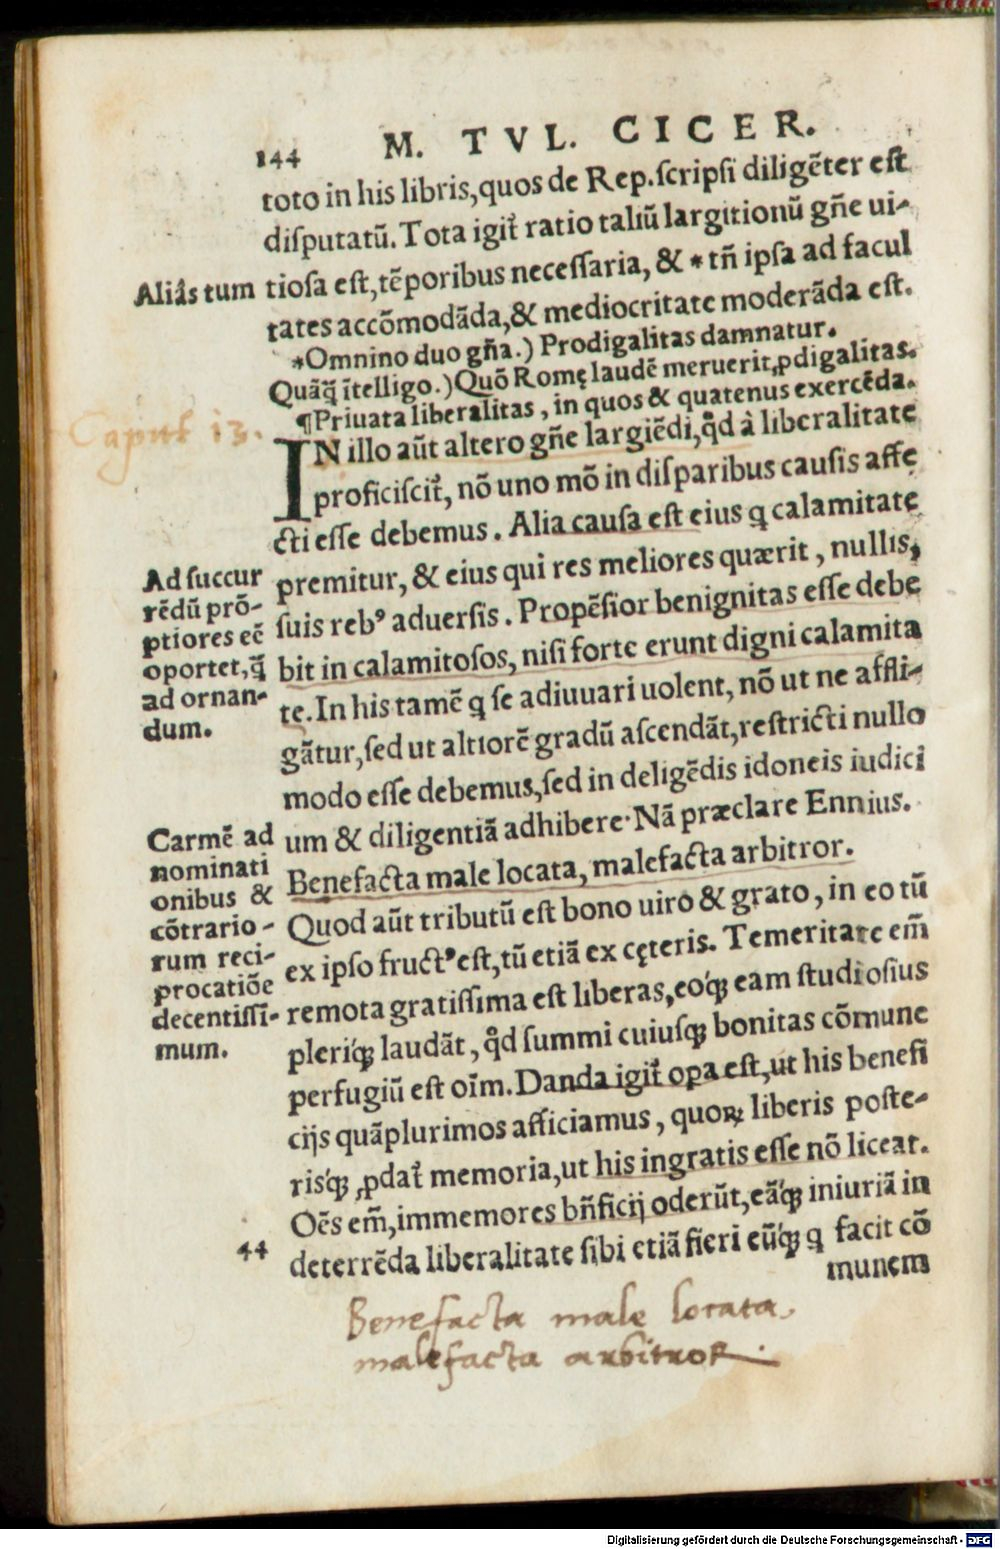 144 M. TVL. CICER.
toto in his libris, quos de Rep. scripsi diligẽter est
disputatũ. Tota igit᷑ ratio taliũ largitionũ gñe ui-
Aliâs tum
tiosa est, tẽporibus necessaria, & * tñ ipsa ad facul
tates accõmodãda, & mediocritate moderãda est.
*Omnino duo gña.) Prodigalitas damnatur.
Quãq̃ ĩtelligo.) Quõ Romę laudẽ meruerit ꝓdigalitas.
¶Priuata liberalitas, in quos & quatenus exercẽda.
Caput 13.
IN illo aũt altero gñe largiẽdi, qd̾ à liberalitate
proficiscit᷑, nõ uno mõ in disparibus causis affe
cti esse debemus. Alia causa est eius q calamitate
Ad succur
rẽdũ prõ-
ptiores eẽ
oportet, q̃
ad ornan-
dum.
premitur, & eius qui res meliores quærit, nullis,
suis rebꝰ aduersis. Propẽsior benignitas esse debe
bit in calamitosos, nisi forte erunt digni calamita
te. In his tamẽ q se adiuuari uolent, nõ ut ne affli-
gãtur, sed ut altiorẽ gradũ ascendãt, restricti nullo
modo esse debemus, sed in deligẽdis idoneis iudici
Carmẽ ad
nominati
onibus &
cõtrario-
rum reci-
procatiõe
decentissi-
mum.
um & diligentiã adhibere. Nã præclare Ennius.
Benefacta male locata, malefacta arbitror.
Quod aũt tributũ est bono uiro & grato, in eo tũ
ex ipso fructꝰ est, tũ etiã ex cęteris. Temeritate em̃
remota gratissima est liberas, eoq́ꝫ eam studiosius
pleriq́ꝫ laudãt, qd̾ summi cuiusqꝫ bonitas cõmune
perfugiũ est oĩm. Danda igit᷑ opa est, ut his benefi
cijs quãplurimos afficiamus, quoꝝ liberis poste-
risq́ꝫ ꝓdat᷑ memoria, ut his ingratis esse nõ liceat.
Oẽs em̃, immemores bñficij oderũt, eãq́ꝫ iniuriã in
44
deterrẽda liberalitate sibi etiã fieri eũq́ꝫ q facit cõ
munem
Benefacta male locata,
malefacta arbitror.
Digitalisierung gefördert durch die Deutsche Forschungsgemeinschaft - DFG